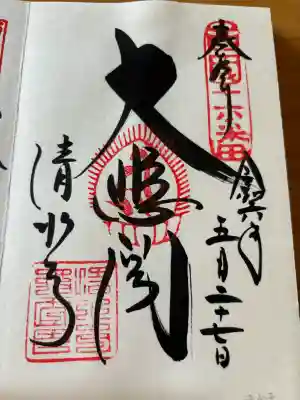 奉拝
令和六年
五月二十七日
大悲閣
清水寺